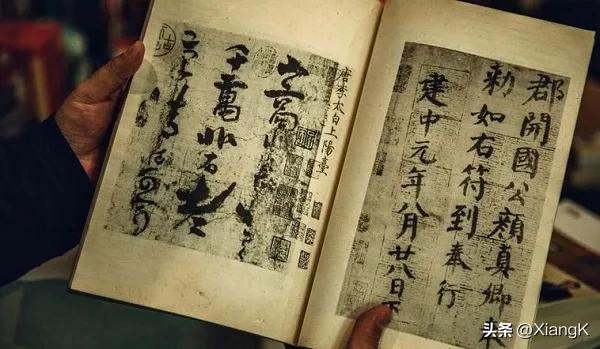 郡開國公顏真卿
勅如右符到奉行
建中元年八月廿八日下
唐李太白上陽臺
山高水長
千萬非有老
头条 @XiangK